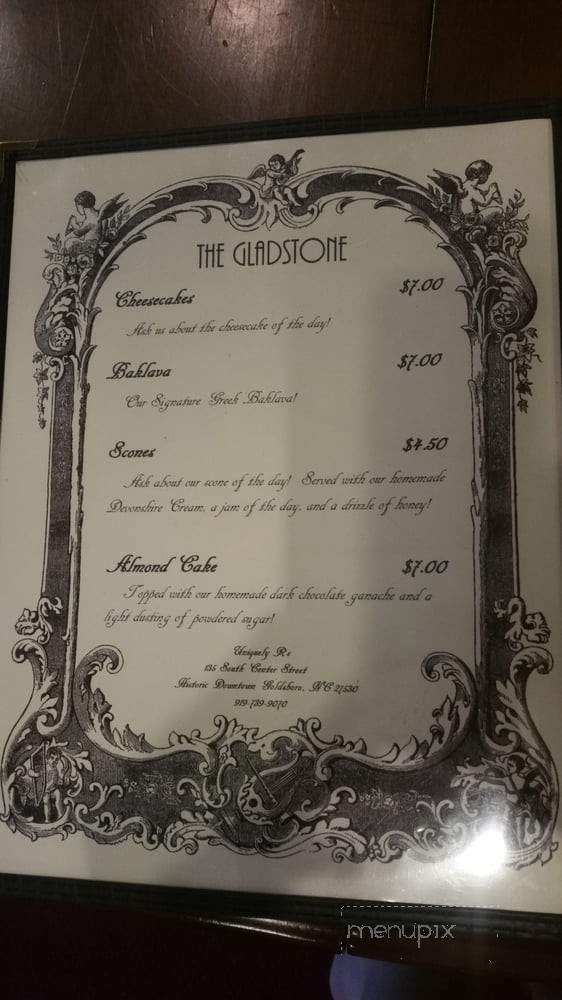 THE GLADSTONE
Cheesecakes $7.00
Ask us about the cheesecake of the day!
Baklava $7.00
Our Signature Greek Baklava!
Scones $4.50
Ask about our scone of the day! Served with our homemade
Devonshire Cream, a jam of the day, and a drizzle of honey!
Almond Cake $7.00
Topped with our homemade dark chocolate ganache and a
light dusting of powdered sugar!
Uniquely Rs
135 South Center Street
Historic Downtown Goldsboro, NC 27530
919-739-9070
menupix